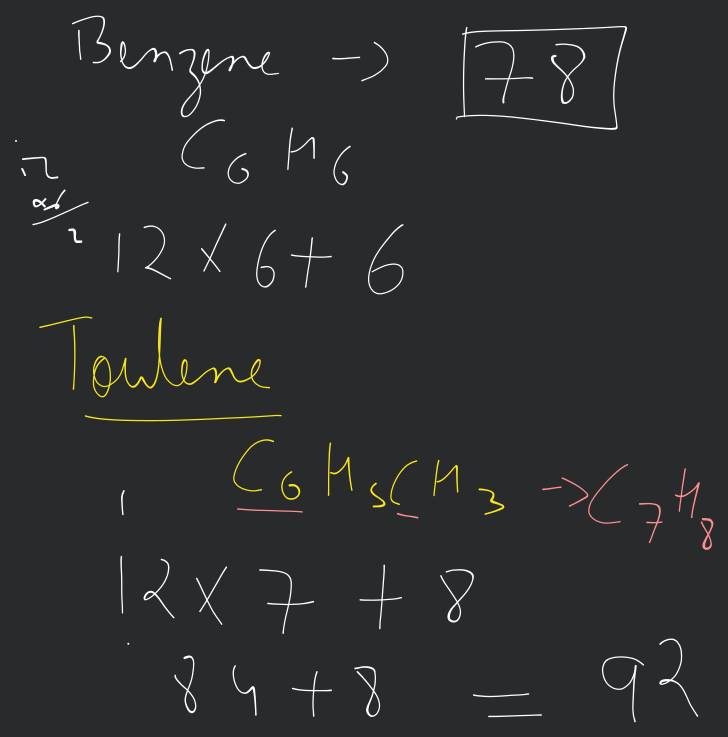 Benzene -> 78
C6H6
12 × 6 + 6
Toulene
C6H5CH3 -> C7H8
12 × 7 + 8
84 + 8 = 92